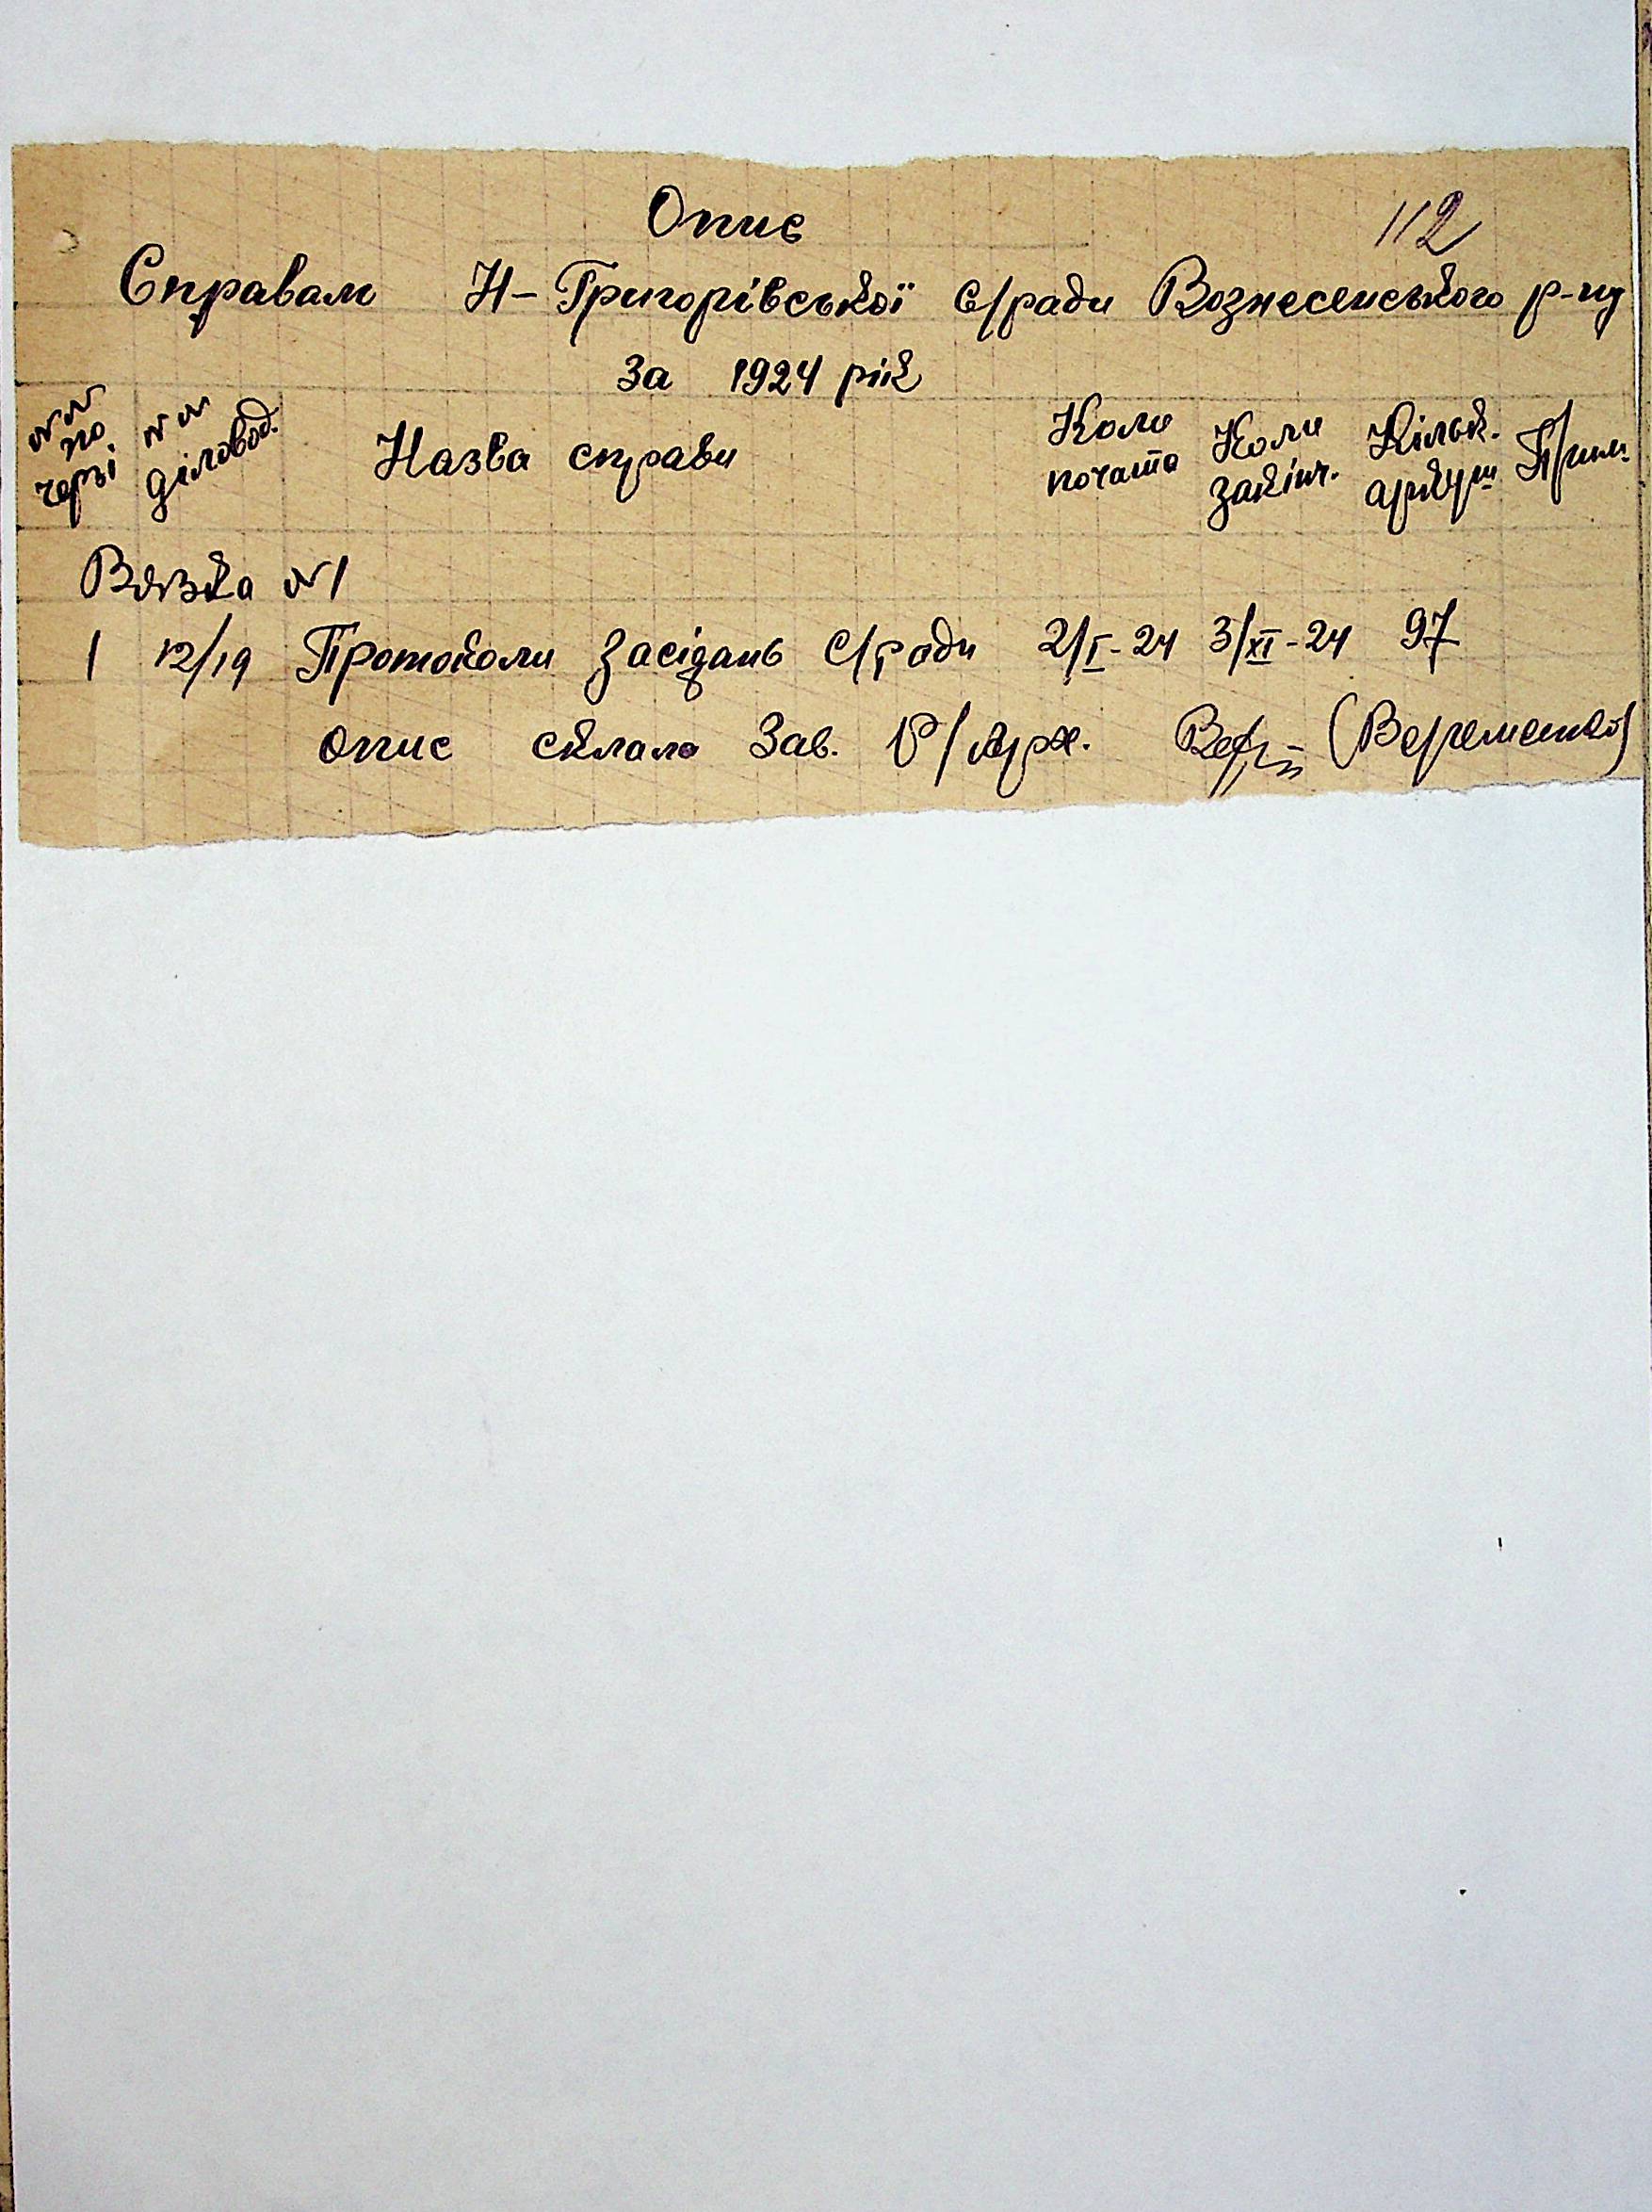 Опис
112
Справам Н-Григорівської с/ради Вознесенського р-ну
За 1924 рік
№№ по черзі №№ діловод. Назва справи Коли почата Коли закінч. Кільк. аркуш. Прим.
Вязка №1
1 12/19 Протоколи Засідань с/ради 2/I-24 3/XI-24 97
опис склала Зав. Р/Арх. (Веременко)